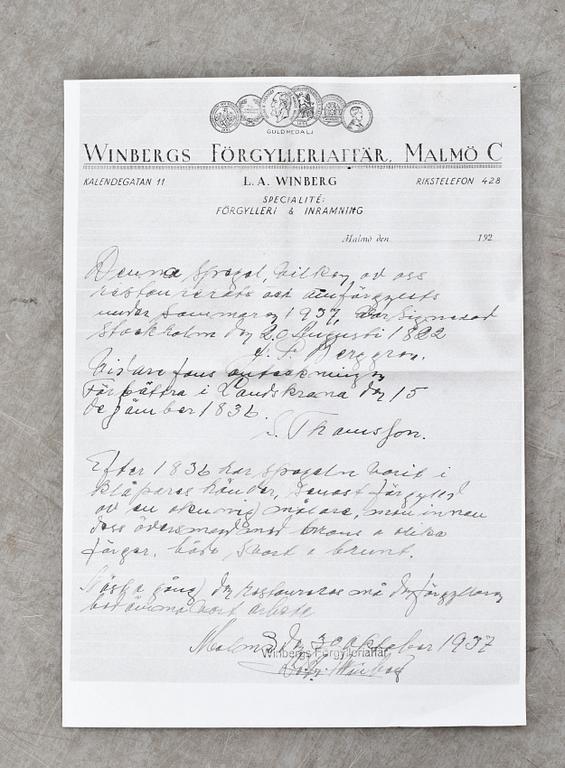 GULDMEDALJ
WINBERGS FÖRGYLLERIAFFÄR, MALMÖ C
KALENDEGATAN 11 L. A. WINBERG RIKSTELEFON 428
SPECIALITÉ:
FÖRGYLLERI & INRAMNING
Malmö den 192
Denna spegel, vilken av oss
restaurerats och omförgyllts
under sommaren 1937, var signerad
Stockholm den 20 Augusti 1822
Berggren.
Vidare fans anteckningen
Förbättra i Landskrona den 15
december 1836.
S. Thomsson.
Efter 1836 har spegeln varit i
klåpares händer, senast förgylld
av en okunnig målare, men innan
dess översmord med brons o olika
färger, både svart o brunt.
Nästa gång den restaureras må den förgyllaren
vårt arbete
Malmö den 30 oktober 1937
Winbergs Förgylleriaffär
Winberg